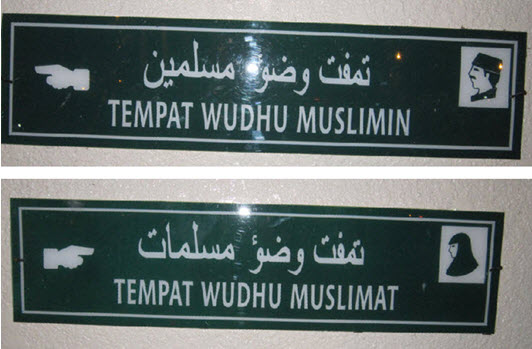 تمفت وضوء مسلمين
TEMPAT WUDHU MUSLIMIN
تمفت وضوء مسلمات
TEMPAT WUDHU MUSLIMAT